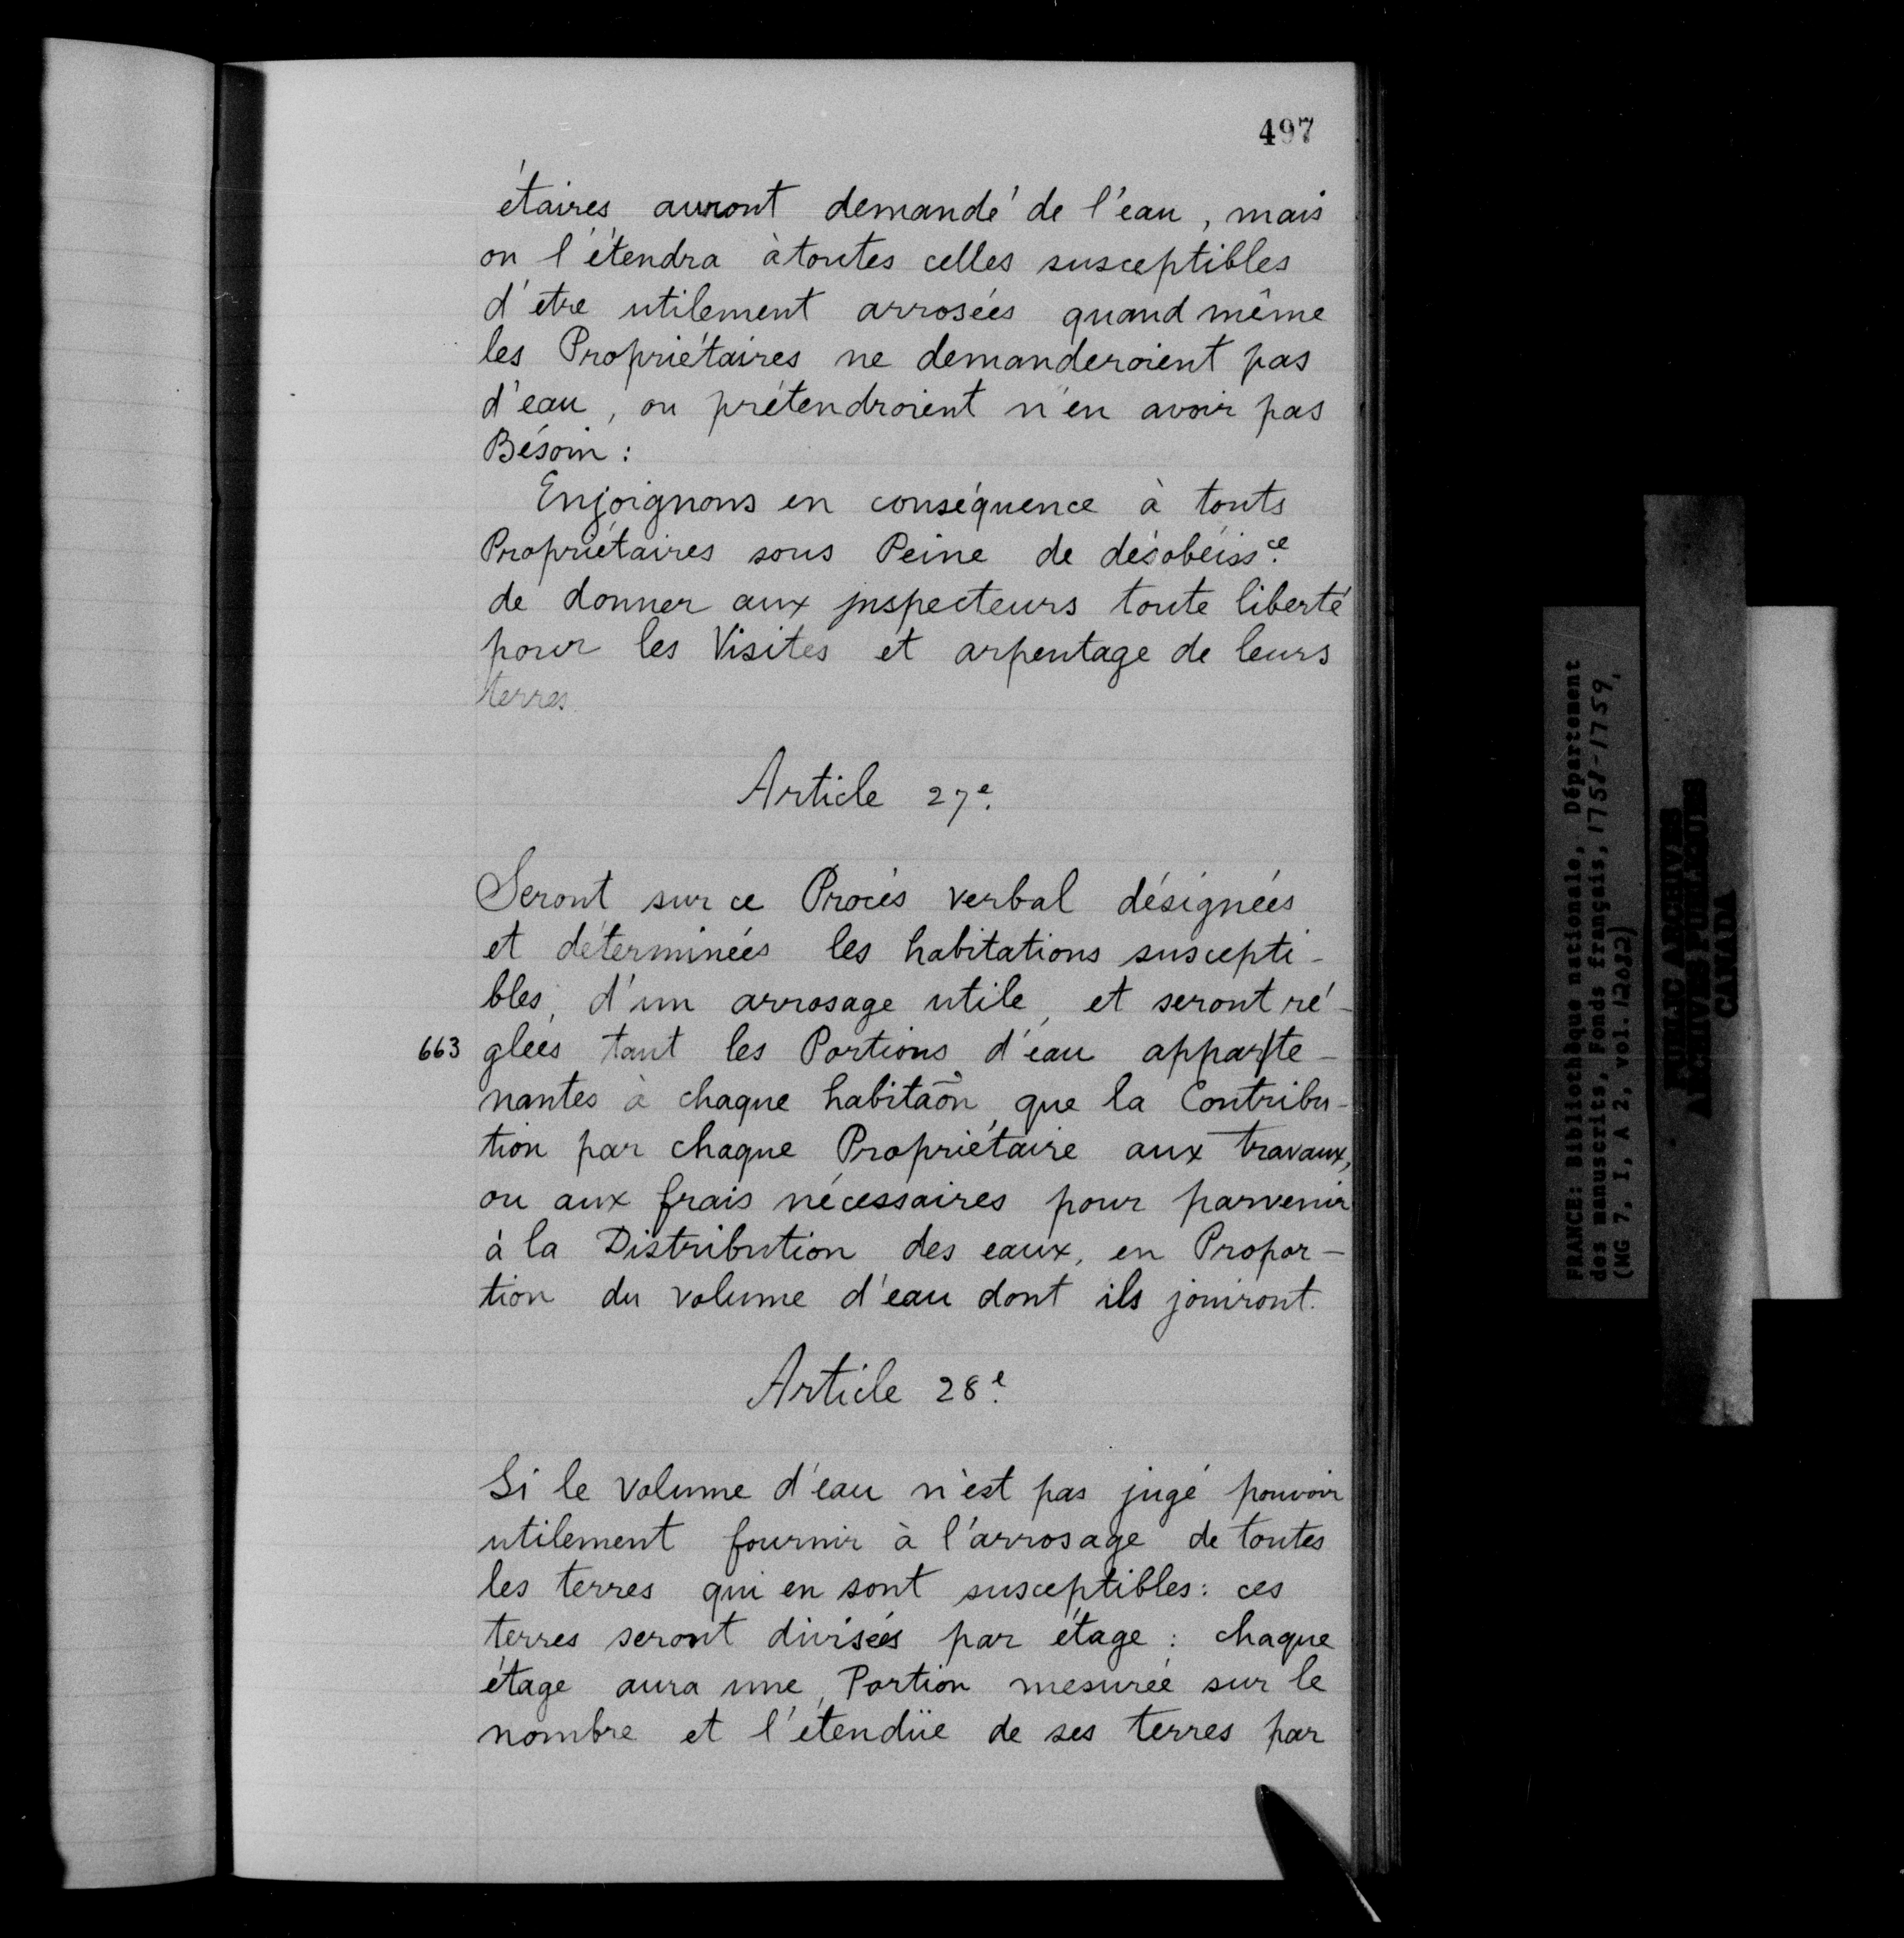 497
étaires auront demandé de l'eau, mais
on l'étendra à toutes celles susceptibles
d'etre utilement arrosées quand même
les Propriétaires ne demanderoient pas
d'eau, ou prétendroient n'en avoir pas
Bésoin :
Enjoignons en conséquence à touts
Propriétaires sous Peine de désobéiss.ce
de donner aux jnspecteurs toute liberté
pour les Visites et arpentage de leurs
terres.
Article 27e.
Seront sur ce Procés verbal désignées
et déterminées les habitations suscepti-
bles, d'un arrosage utile, et seront ré-
663 glées tant les Portions d'eau apparte-
nantes à chaque habitaõn, que la Contribu-
tion par chaque Propriétaire aux travaux,
ou aux frais nécessaires pour parvenir
à la Distribution des eaux, en Propor-
tion du volume d'eau dont ils jouiront.
Article 28e.
Si le volume d'eau n'est pas jugé pouvoir
utilement fournir à l'arrosage de toutes
les terres qui en sont susceptibles : ces
terres seront divisées par étage : chaque
étage aura une, Portion mesurée sur le
nombre et l'étendüe de ses terres par
FRANCE: Bibliothèque nationale, Département
des manuscrits, Fonds français, 1758-1759,
(MG 7, I, A 2, vol. 12082)
PUBLIC ARCHIVES
ARCHIVES PUBLIQUES
CANADA